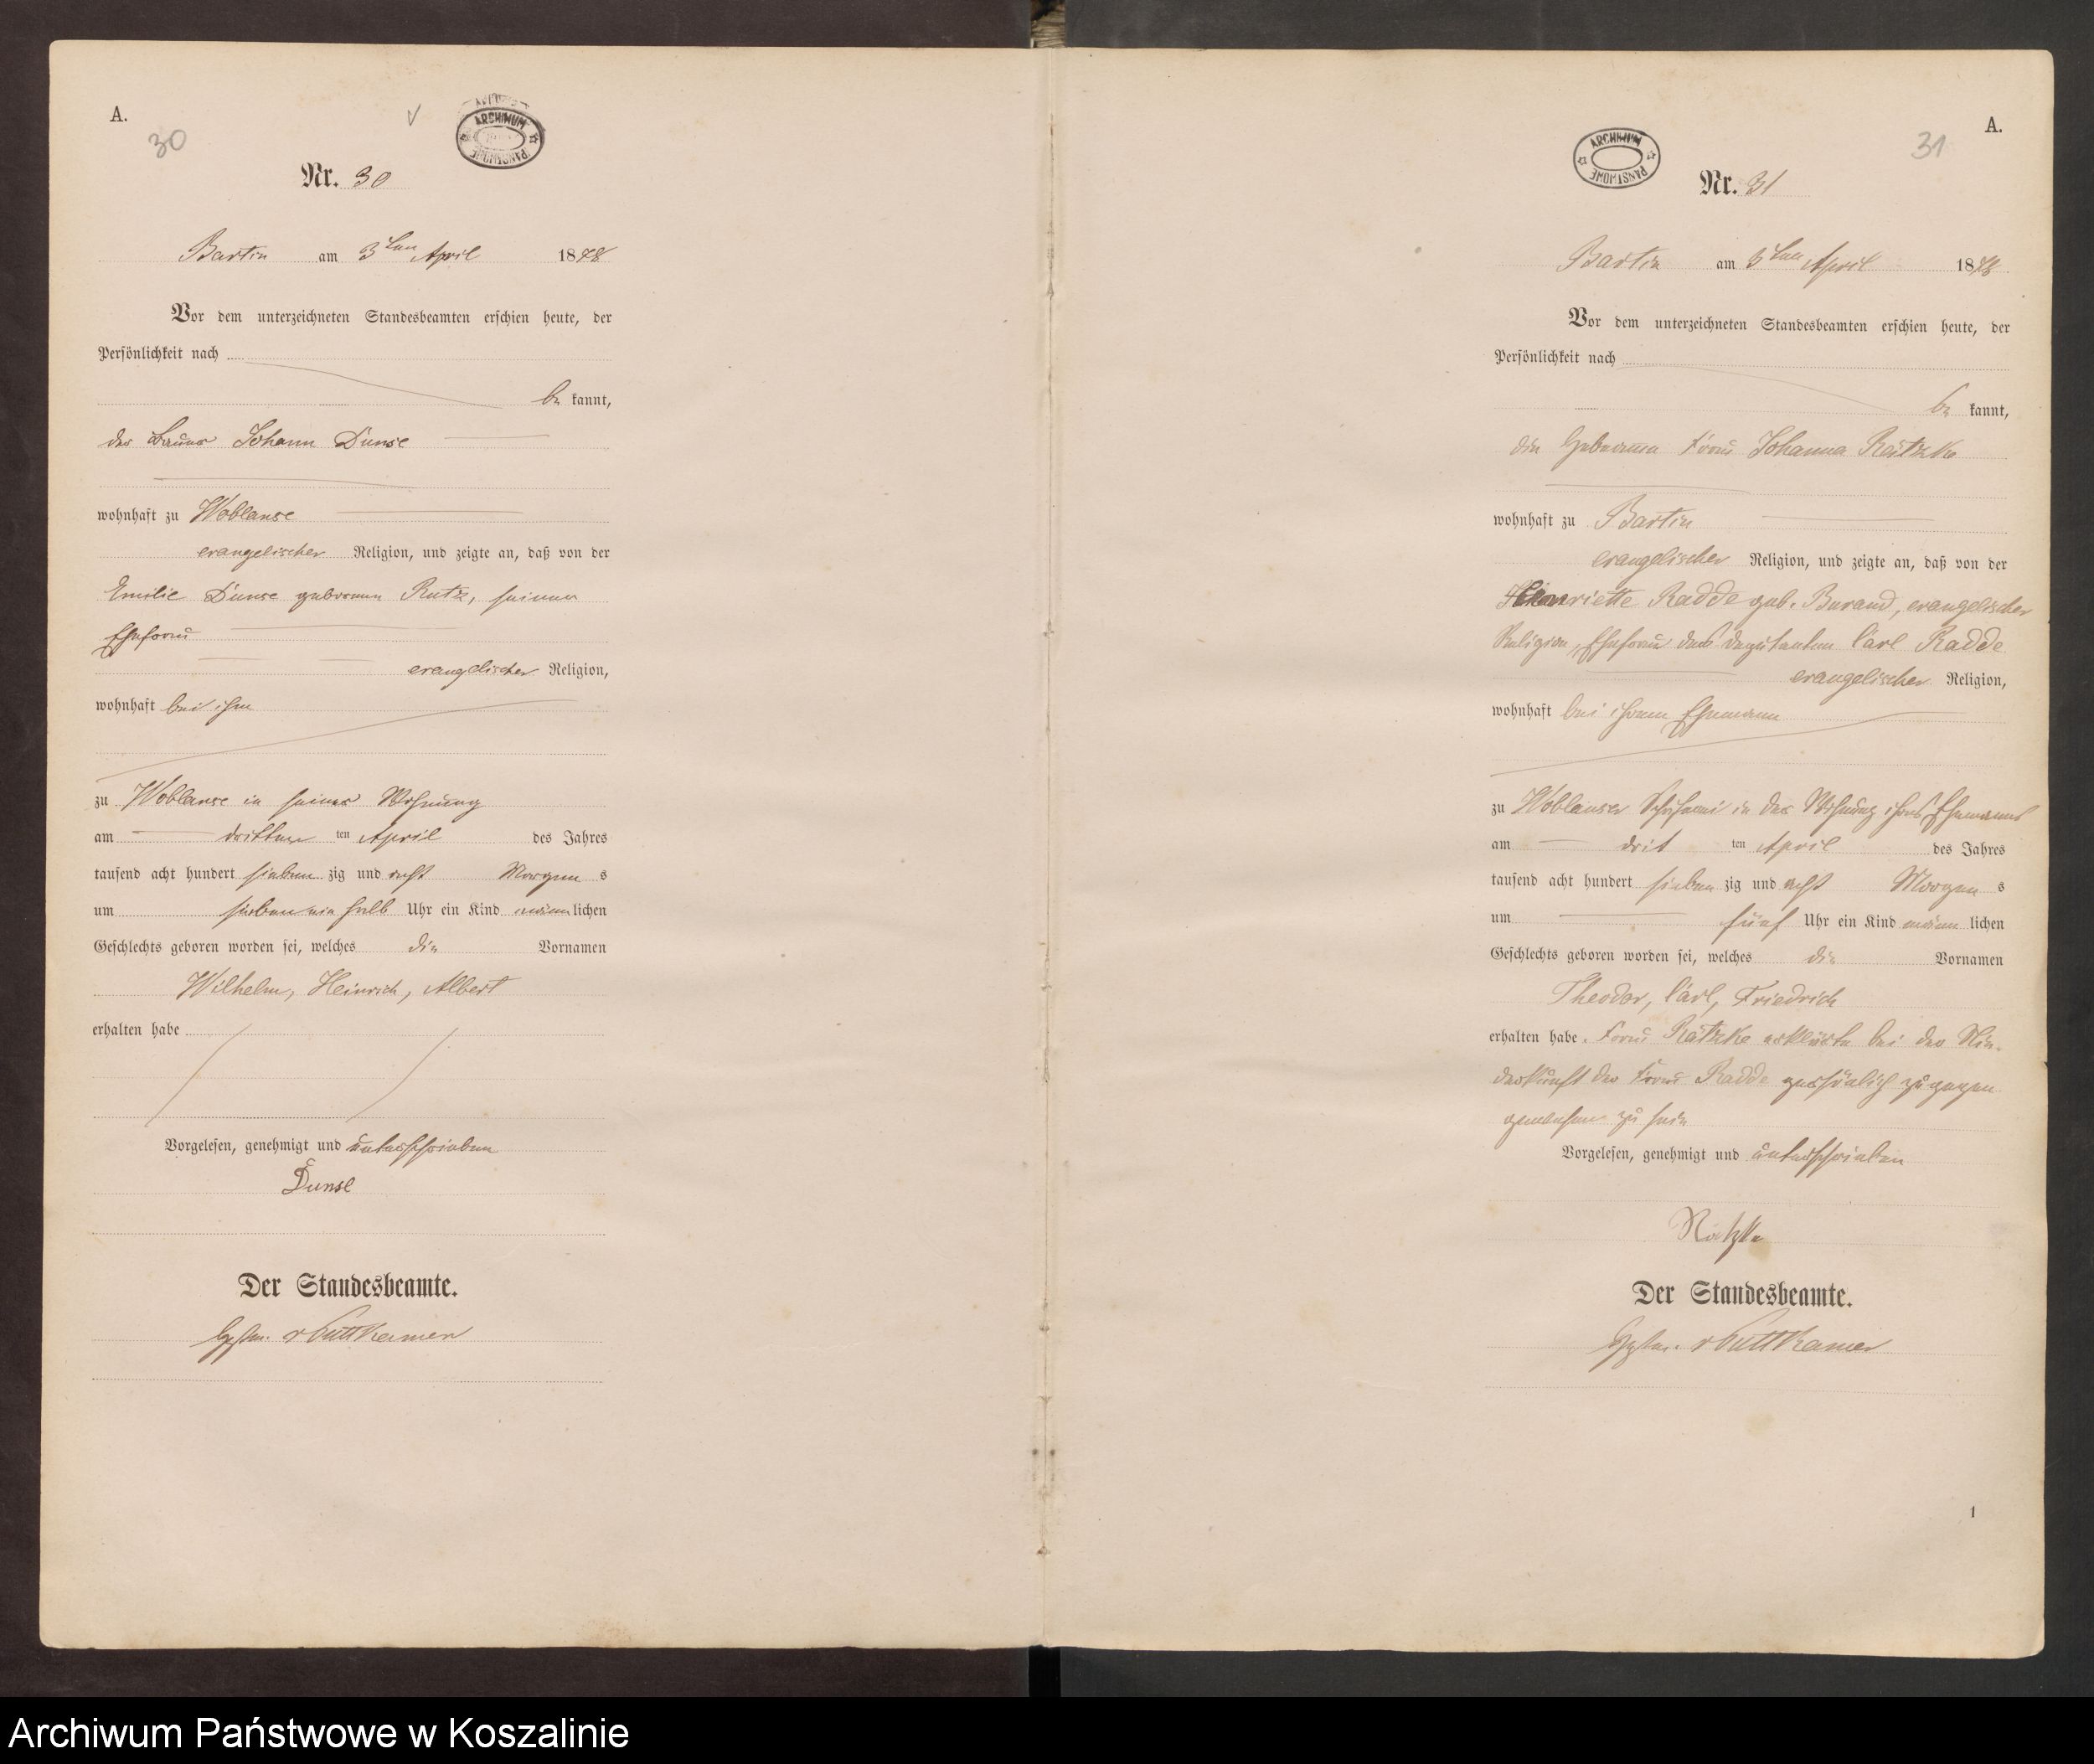 A.
30
ARCHIWUM PAŃSTWOWE
Nr. 30
Bartin am 3ten April 1878
Vor dem unterzeichneten Standesbeamten erschien heute, der
Persönlichkeit nach
be kannt,
der Bauer Johann Dunse
wohnhaft zu Woblanse
evangelischer Religion, und zeigte an, daß von der
Emilie Dunse geborenen Rutz, seiner
Ehefrau
evangelischer Religion,
wohnhaft bei ihm
zu Woblanse in seiner Wohnung
am dritten ten April des Jahres
tausend acht hundert sieben zig und acht Morgen s
um sieben ein halb Uhr ein Kind männ lichen
Geschlechts geboren worden sei, welches die Vornamen
Wilhelm, Heinrich, Albert
erhalten habe
Vorgelesen, genehmigt und unterschrieben
Dunse
Der Standesbeamte.
v Puttkamer
A.
31
ARCHIWUM PAŃSTWOWE
Nr. 31
Bartin am 3ten April 1878
Vor dem unterzeichneten Standesbeamten erschien heute, der
Persönlichkeit nach
be kannt,
die Hebamme Frau Johanna Rätzke
wohnhaft zu Bartin
evangelischer Religion, und zeigte an, daß von der
Henriette Radde geb. Burand, evangelischer
Religion, Ehefrau des Carl Radde
evangelischer Religion,
wohnhaft bei ihrem Ehemann
zu Woblanser in der Wohnung ihres Ehemanns
am drit ten April des Jahres
tausend acht hundert sieben zig und acht Morgen s
um fünf Uhr ein Kind männ lichen
Geschlechts geboren worden sei, welches die Vornamen
Theodor, Carl, Friedrich
erhalten habe. Frau Rätzke erklärte bei der Nie-
derkunft der Frau Radde persönlich zugegen
gewesen zu sein
Vorgelesen, genehmigt und unterschrieben
Rätzke
Der Standesbeamte.
v Puttkamer
1
Archiwum Państwowe w Koszalinie